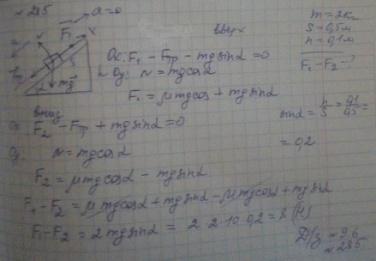 № 285
a=0
вверх
m = 2кг
S = 0,5м
h = 0,1м
F₁ - F₂ - ?
Ox: F₁ - Fтр - mg sinα = 0
Oy: N = mg cosα
F₁ = μmg cosα + mg sinα
sinα = h/S = 0,1/0,5 =
= 0,2
вниз
Ox: F₂ - Fтр + mg sinα = 0
Oy: N = mg cosα
F₂ = μmg cosα - mg sinα
F₁ - F₂ = μmg cosα + mg sinα - μmg cosα + mg sinα
F₁ - F₂ = 2mg sinα = 2·2·10·0,2 = 8 (Н)
Д/з